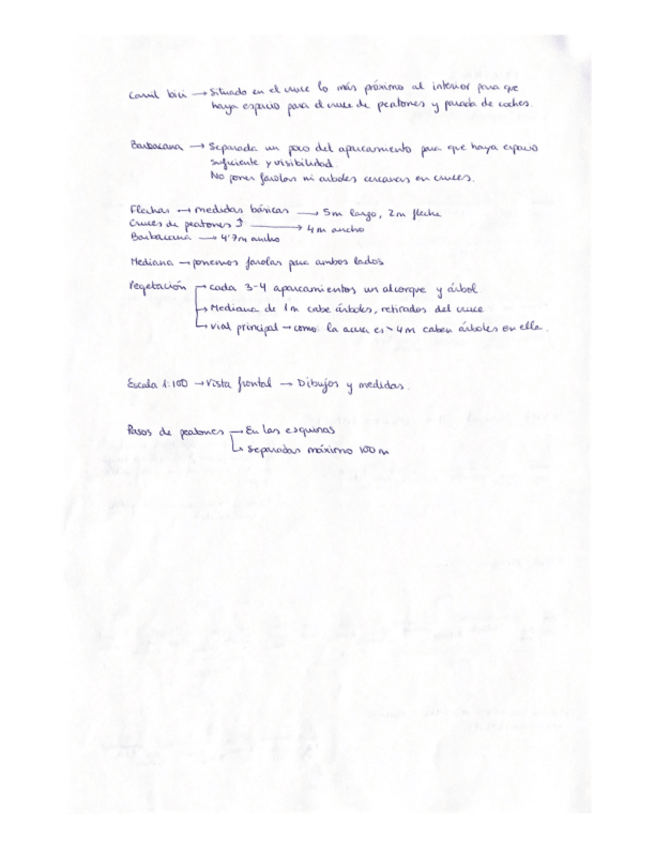 Carril bici → Situado en el cruce lo más próximo al interior para que
haya espacio para el cruce de peatones y parada de coches.
Barbacana → Separada un poco del aparcamiento para que haya espacio
suficiente y visibilidad.
No poner farolas ni arboles cercanos en cruces.
Flechas → medidas básicas → 5m largo, 2m flecha
Cruces de peatones → 4m ancho
Barbacana → 4'7m ancho
Mediana → ponemos farolas para ambos lados
Vegetación → cada 3-4 aparcamientos un alcorque y árbol
→ Mediana de 1m cabe árboles, retirados del cruce
→ vial principal → como la acera es ~ 4m caben árboles en ella.
Escala 1:100 → Vista frontal → Dibujos y medidas.
Pasos de peatones → En las esquinas
→ Separadas máximo 100m